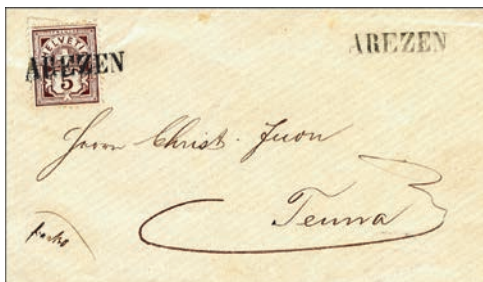 HELVETIA
5
AREZEN
AREZEN
Herrn Christ. Juon
Tenna